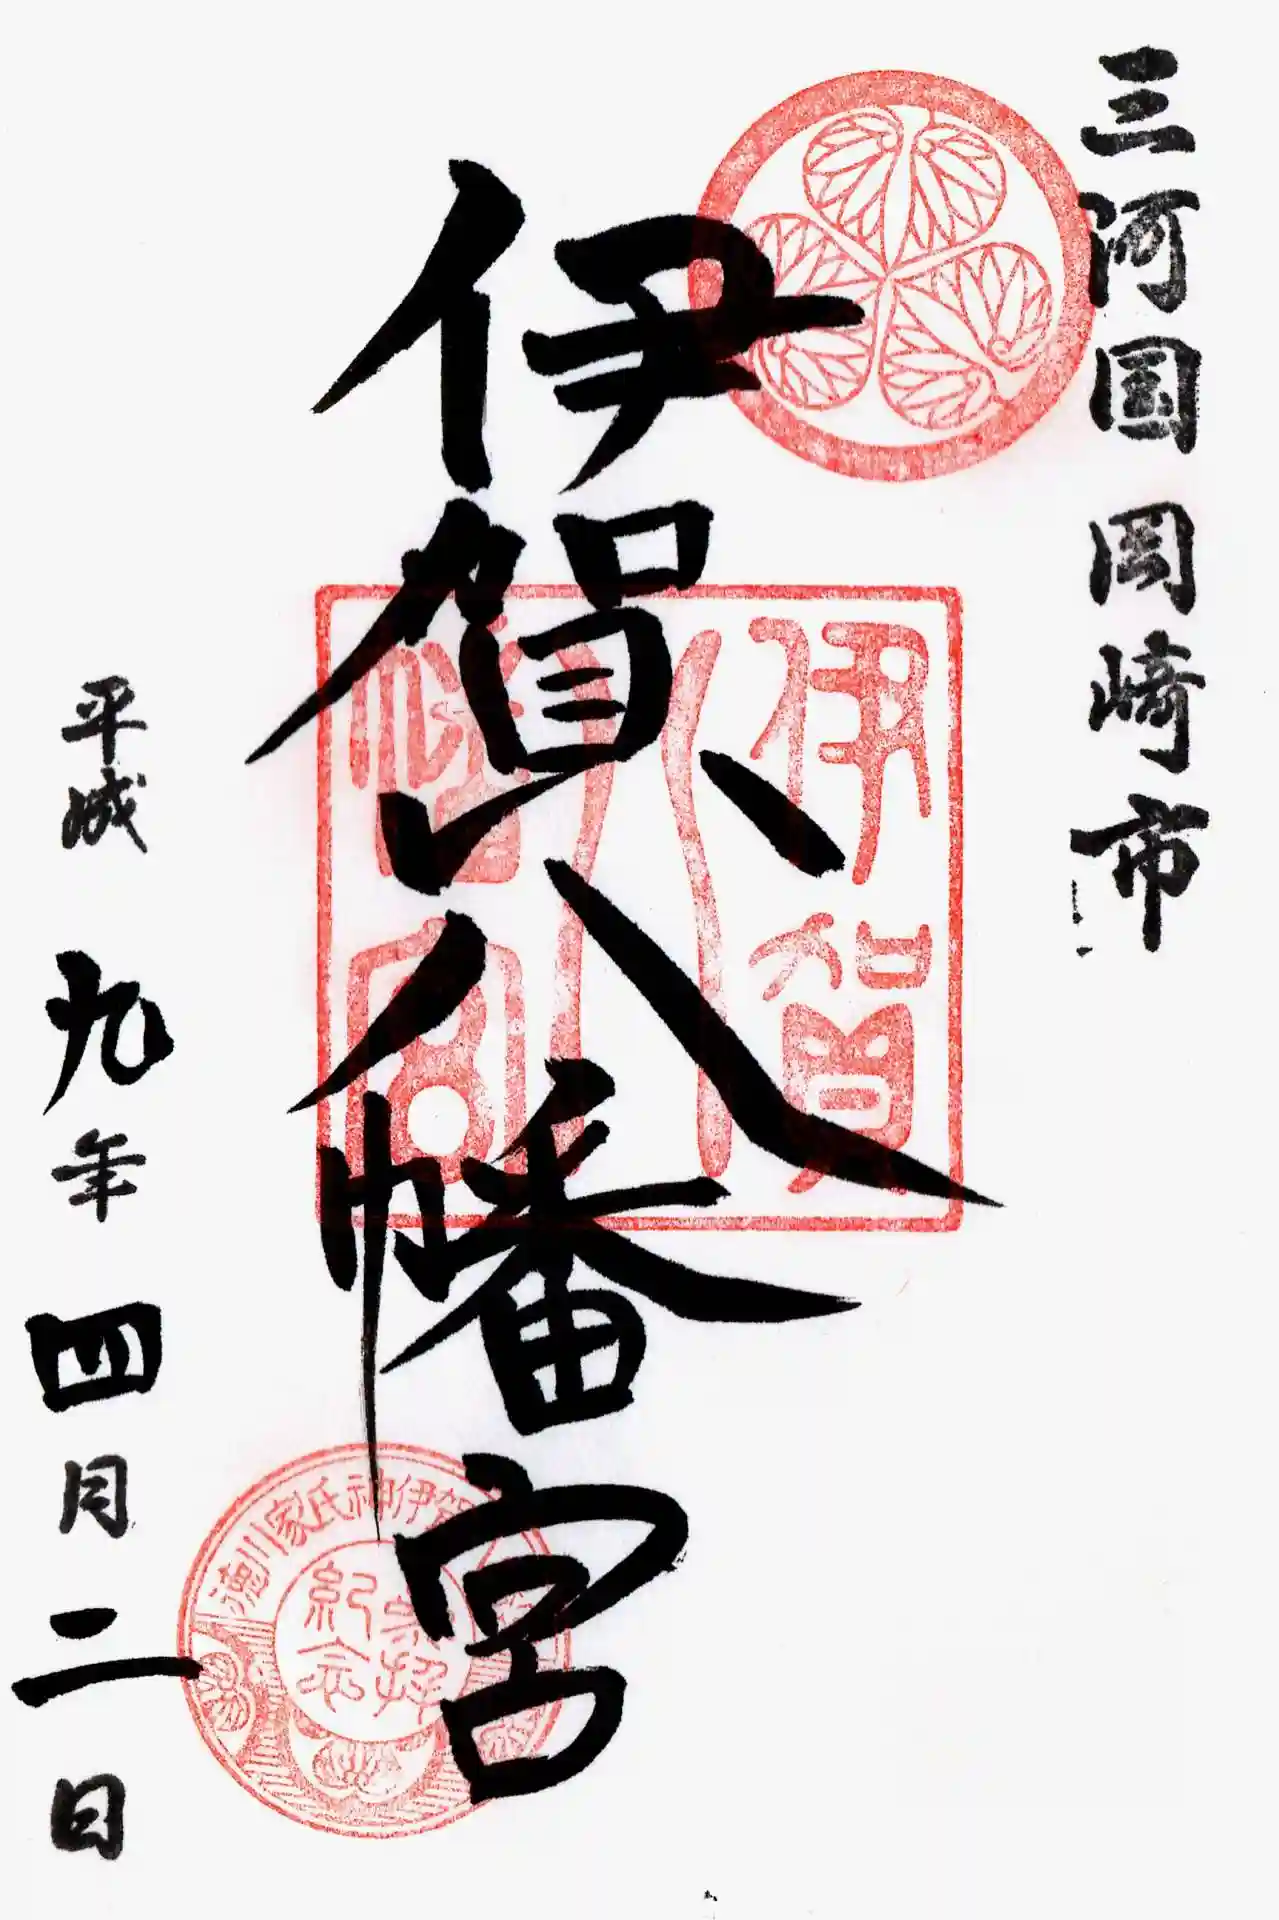 三河国 岡崎市
伊賀八幡宮
伊賀
八幡宮
徳川家氏神伊賀
参拝
紀念
平成 九年 四月 二日